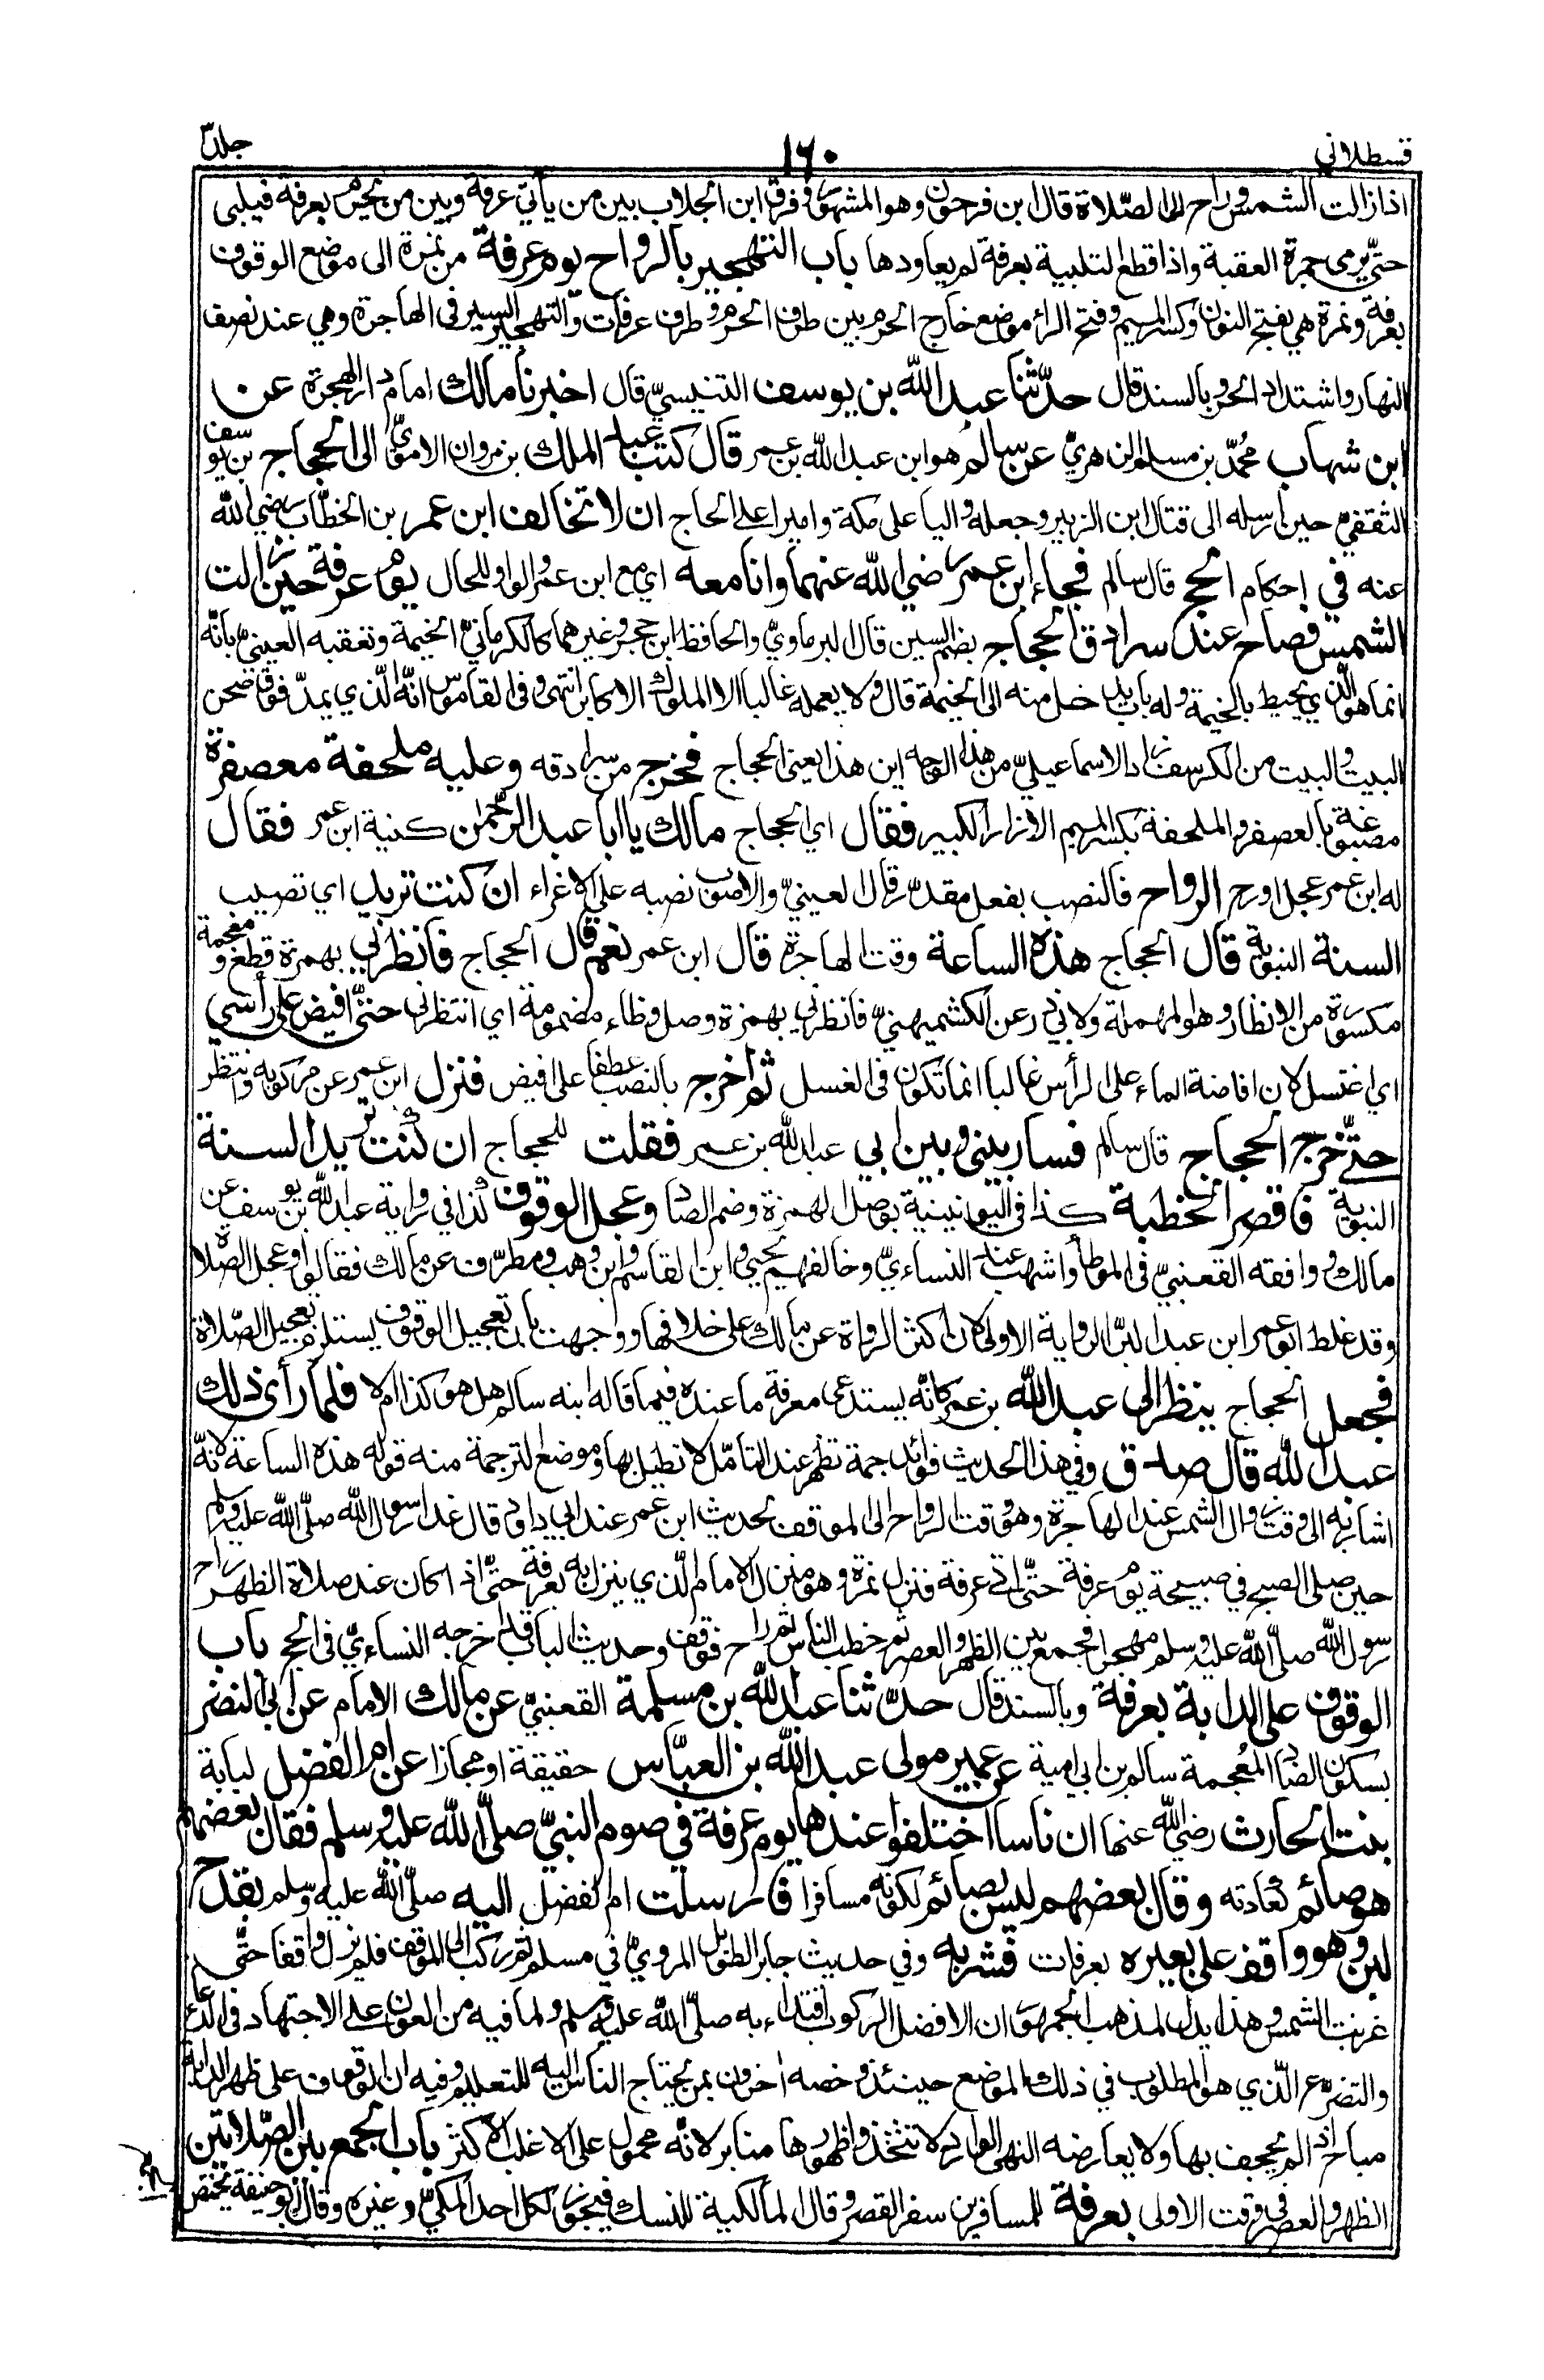 قسطلاني
١٦٠
جلد٣
اذا زالت الشمس وراح الى الصّلاة قال ابن فرحون وهو المشهور وفرق ابن الجلاب بين من يأتي عرفة وبين من يحرم بعرفة فيلبى
حتّى يرمى جمرة العقبة واذا قطع التلبية بعرفة لم يعاودها باب التهجير بالرواح يوم عرفة من نمرة الى موضع الوقوف
بعرفة ونمرة هي بفتح النون وكسر الميم وفتح الراء موضع خارج الحرم بين طرف الحرم وطرف عرفات والتهجير السير في الهاجرة وهي عند نصف
النهار واشتداد الحر وبالسند قال حدّثنا عبد الله بن يوسف التنيسيّ قال اخبرنا مالك امام دار الهجرة عن
ابن شهاب محمّد بن مسلم الزهريّ عن سالم هو ابن عبد الله بن عمر قال كتب عبد الملك بن مروان الامويّ الى الحجاج بن يوسف
الثقفيّ حين ارسله الى قتال ابن الزبير وجعله واليا على مكة واميرا على الحاج ان لا تخالف ابن عمر بن الخطّاب رضي الله
عنه في احكام الحج قال سالم فجاء ابن عمر رضي الله عنهما وانا معه اي مع ابن عمر والواو للحال يوم عرفة حين زالت
الشمس فصاح عند سرادق الحجاج بضم السين قال البرماويّ والحافظ ابن حجر وغيرهما كالكرمانيّ الخيمة وتعقبه العينيّ بانّه
انما هو الّذي يحيط بالخيمة وله باب يدخل منه الى الخيمة قال ولا يعمله غالبا الا الملوك الاكابر انتهى وفي القاموس انّه الّذي يمدّ فوق صحن
البيت والبيت من الكرسف زاد الاسماعيليّ من هذا الوجه اين هذا يعنى الحجاج فخرج من سرادقه وعليه ملحفة معصفرة
مصبوغة بالعصفر والملحفة بكسر الميم الازار الكبير فقال اي الحجاج مالك يا ابا عبد الرحمن كنية ابن عمر فقال
له ابن عمر عجل اورح الرواح فالنصب بفعل مقدّر قال العينيّ والاصوب نصبه على الاغراء ان كنت تريد اي تصيب
السنة النبوية قال الحجاج هذه الساعة وقت الهاجرة قال ابن عمر نعم قال الحجاج فانظرني بهمزة قطع ومعجمة
مكسورة من الانظار وهو المهملة ولابي ذر عن الكشميهنيّ فانظرني بهمزة وصل وظاء مضمومة اي انتظرني حتّى افيض على رأسي
اي اغتسل لان افاضة الماء على الرأس غالبا انما تكون في الغسل ثم اخرج بالنصب عطفا على افيض فنزل ابن عمر عن مركوبه وانتظر
حتّى خرج الحجاج قال سالم فسار بيني وبين ابي عبد الله بن عمر فقلت للحجاج ان كنت تريد السنة
النبوية فاقصر الخطبة كذا في اليونينية بوصل الهمزة وضم الصاد وعجل الوقوف كذا في رواية عبد الله بن يوسف عن
مالك ووافقه القعنبيّ في الموطأ واشهب عند النساءيّ وخالفهم يحيى وابن القاسم وابن وهب ومطرّف عن مالك فقالوا وعجل الصّلاة
وقد غلط ابو عمر ابن عبد البرّ الرواية الاولى لان اكثر الرواة عن مالك على خلافها ووجهت بان تعجيل الوقوف يستلزم تعجيل الصّلاة
فجعل الحجاج ينظر الى عبد الله بن عمر كانّه يستدعى معرفة ما عنده فيما قاله ابنه سالم هل هو كذا ام لا فلمّا رأى ذلك
عبد الله قال صدق وفي هذا الحديث فوائد جمة تظهر عند التأمّل لا نطيل بها وموضع الترجمة منه قوله هذه الساعة لانّه
اشار به الى وقت زوال الشمس عند الهاجرة وهو وقت الرواح الى الموقف لحديث ابن عمر عند ابي داود قال غدا رسول الله صلّى الله عليه وسلم
حين صلى الصبح في صبيحة يوم عرفة حتّى اتى عرفة فنزل نمرة وهو منزل الامام الّذي ينزل به بعرفة حتّى اذا كان عند صلاة الظهر راح
رسول الله صلّى الله عليه وسلم مهجرا فجمع بين الظهر والعصر ثم خطب الناس ثم راح فوقف وحديث الباب قد اخرجه النساءيّ في الحج باب
الوقوف على الدابة بعرفة وبالسند قال حدّثنا عبد الله بن مسلمة القعنبيّ عن مالك الامام عن ابي النضر
بسكون الضاد المعجمة سالم بن ابي امية عن عمير مولى عبد الله بن العبّاس حقيقة او مجازا عن ام الفضل لبابة
بنت الحارث رضي الله عنها ان ناسا اختلفوا عندها يوم عرفة في صوم النبيّ صلّى الله عليه وسلم فقال بعضهم
هو صائم كعادته وقال بعضهم ليس بصائم لكونه مسافرا فارسلت ام الفضل اليه صلّى الله عليه وسلم بقدح
لبن وهو واقف على بعيره بعرفات فشربه وفي حديث جابر الطويل المرويّ في مسلم ثم ركب الى الموقف فلم يزل واقفا حتّى
غربت الشمس وهذا يدل لمذهب الجمهور ان الافضل الركوب اقتداء به صلّى الله عليه وسلم ولما فيه من العون على الاجتهاد في الدعاء
والتضرّع الّذي هو المطلوب في ذلك الموضع حينئذ وخصه اخرون بمن يحتاج الناس اليه للتعليم وفيه ان الوقوف على ظهر الدابة
مباح اذا لم يجحف بها ولا يعارضه النهى الوارد لا تتخذوا ظهورها منابر لانّه محمول على الاغلب الاكثر باب الجمع بين الصّلاتين
الظهر والعصر في وقت الاولى بعرفة للمسافرين سفر القصر وقال المالكية للنسك فيجوز لكل احد المكيّ وغيره وقال ابو حنيفة يختص